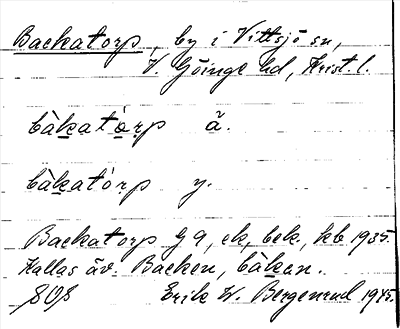 Backatorp, by i Vittsjö sn,
V. Göinge hd, Krist. l.
bàkatórp ä.
bàkatórp y.
Backatorp G 9, ek, bek., kb 1935.
Kallas äv. Backen, bàkan.
SOS Erik W. Bergenrud 1945.